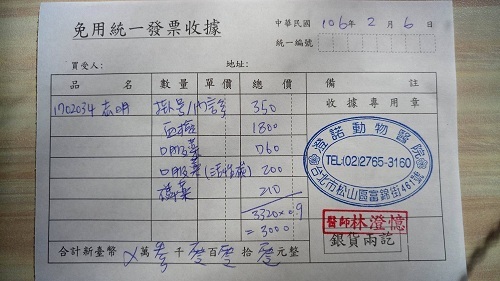 免用統一發票收據
中華民國 106年 2月 6日
統一編號
買受人:
地址:
品名 數量 單價 總價 備註
1702034 志明 掛號/內診 350
收據專用章
血檢 1800
口服藥 760
口服藥 200
擦藥 210
3320×0.9
=3000
澄諾動物醫院
TEL:(02)2765-3160
台北市松山區富錦街461號
醫師 林澄憶
銀貨兩訖
合計新臺幣 萬 參 千 零 百 零 拾 零 元整